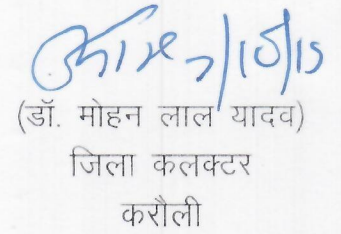 7/10/15
(डॉ. मोहन लाल यादव)
जिला कलक्टर
करौली